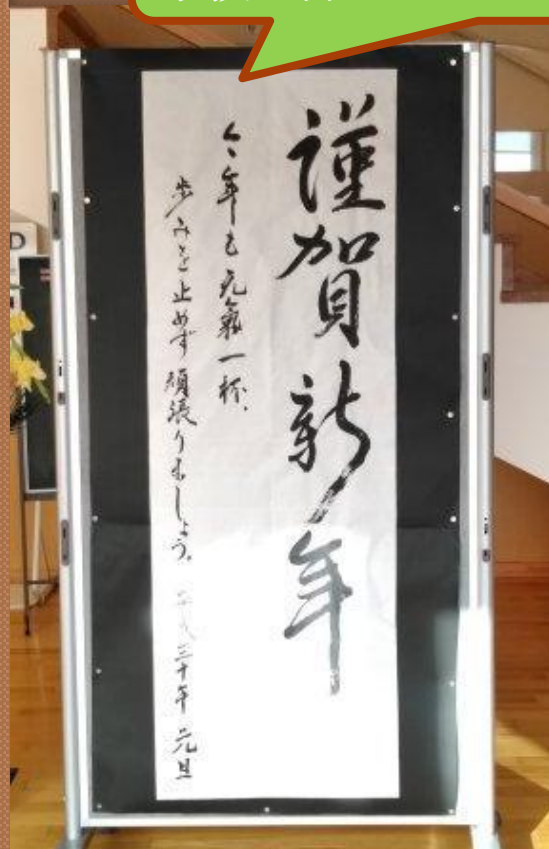 謹賀新年
今年も元氣一杯、
歩みを止めず頑張りましょう。 平成三十年 元旦
D